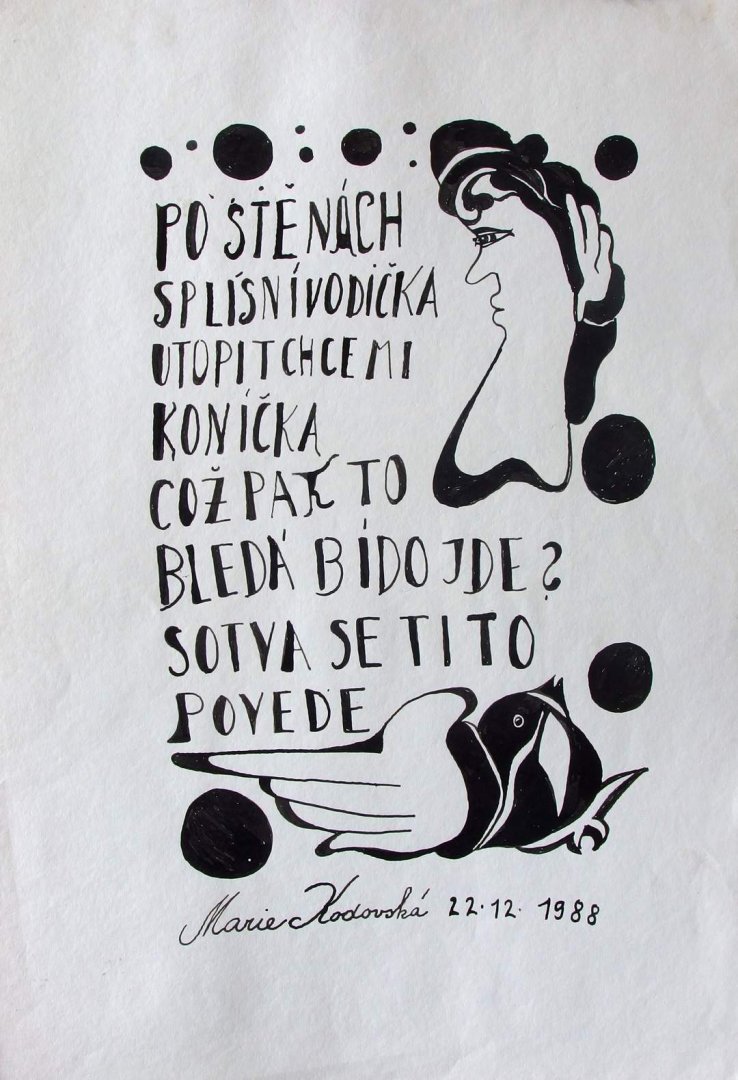 PO STĚNÁCH
SPLÍSNÍVODIČKA
UTOPITCHCEMI
KONÍČKA
COŽPAK TO
BLEDÁ BÍDO JDE?
SOTVA SE TI TO
POVEDE
Marie Kodovská 22.12. 1988